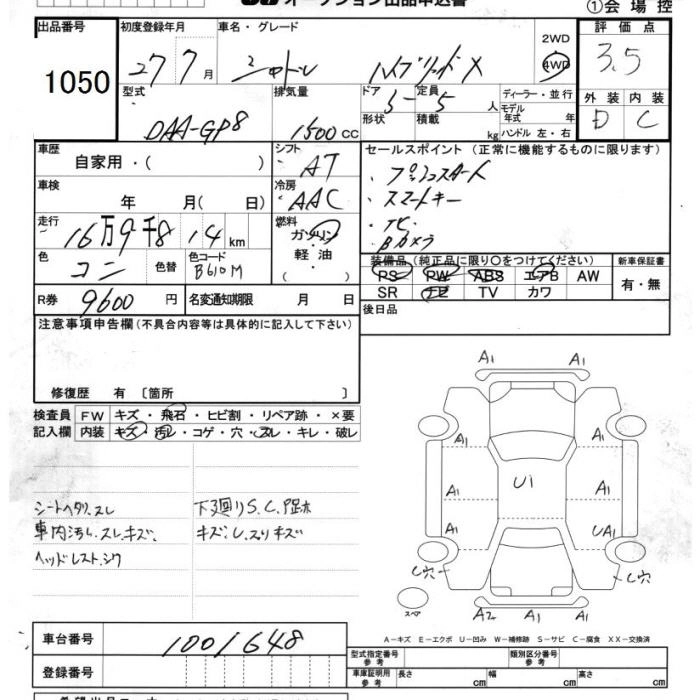 オークション出品申込書
①会場控
出品番号 初度登録年月 車名・グレード 2WD 評価点
1050 27 7月 シャトル ハイブリッドX 4WD 3.5
型式 排気量 ドア 定員 ディーラー・並行 外装 内装
DAA-GP8 1500 CC 5 5 人 モデル年式 年 D C
形状 積載 kg ハンドル 左・右
車歴 シフト セールスポイント (正常に機能するものに限ります)
自家用・( ) AT ・プッシュスタート
車検 冷房 ・スマートキー
年 月( 日) AAC ・ナビ
走行 燃料 ・Bカメラ
16万9千814km ガソリン
色 色替 色コード 軽油 装備品(純正品に限り○をつけてください) 新車保証書
コン B610M ・( ) PS PW ABS エアB AW 有・無
R券 9600円 名変通知期限 月 日 SR ナビ TV カワ
注意事項申告欄(不具合内容等は具体的に記入して下さい) 後日品
修復歴 有 〔箇所 〕
検査員 FW キズ・飛石・ヒビ割・リペア跡・×要
記入欄 内装 キズ・汚レ・コゲ・穴・スレ・キレ・破レ
A1 A1 A1
A1 A1
U1
A1 A1
A1 UA1
C穴 C穴
スペア A2 A1 A1
シートヘタリ、スレ 下廻りS.C.
車内汚レ.スレキズ. キズ.U.スリキズ
ヘッドレスト.シワ
A-キズ E-エクボ U-凹み W-補修跡 S-サビ C-腐食 XX-交換済
車台番号 1001648 型式指定番号 参考 類別区分番号 参考
登録番号 車庫証明用 参考 長さ cm 幅 cm 高さ cm